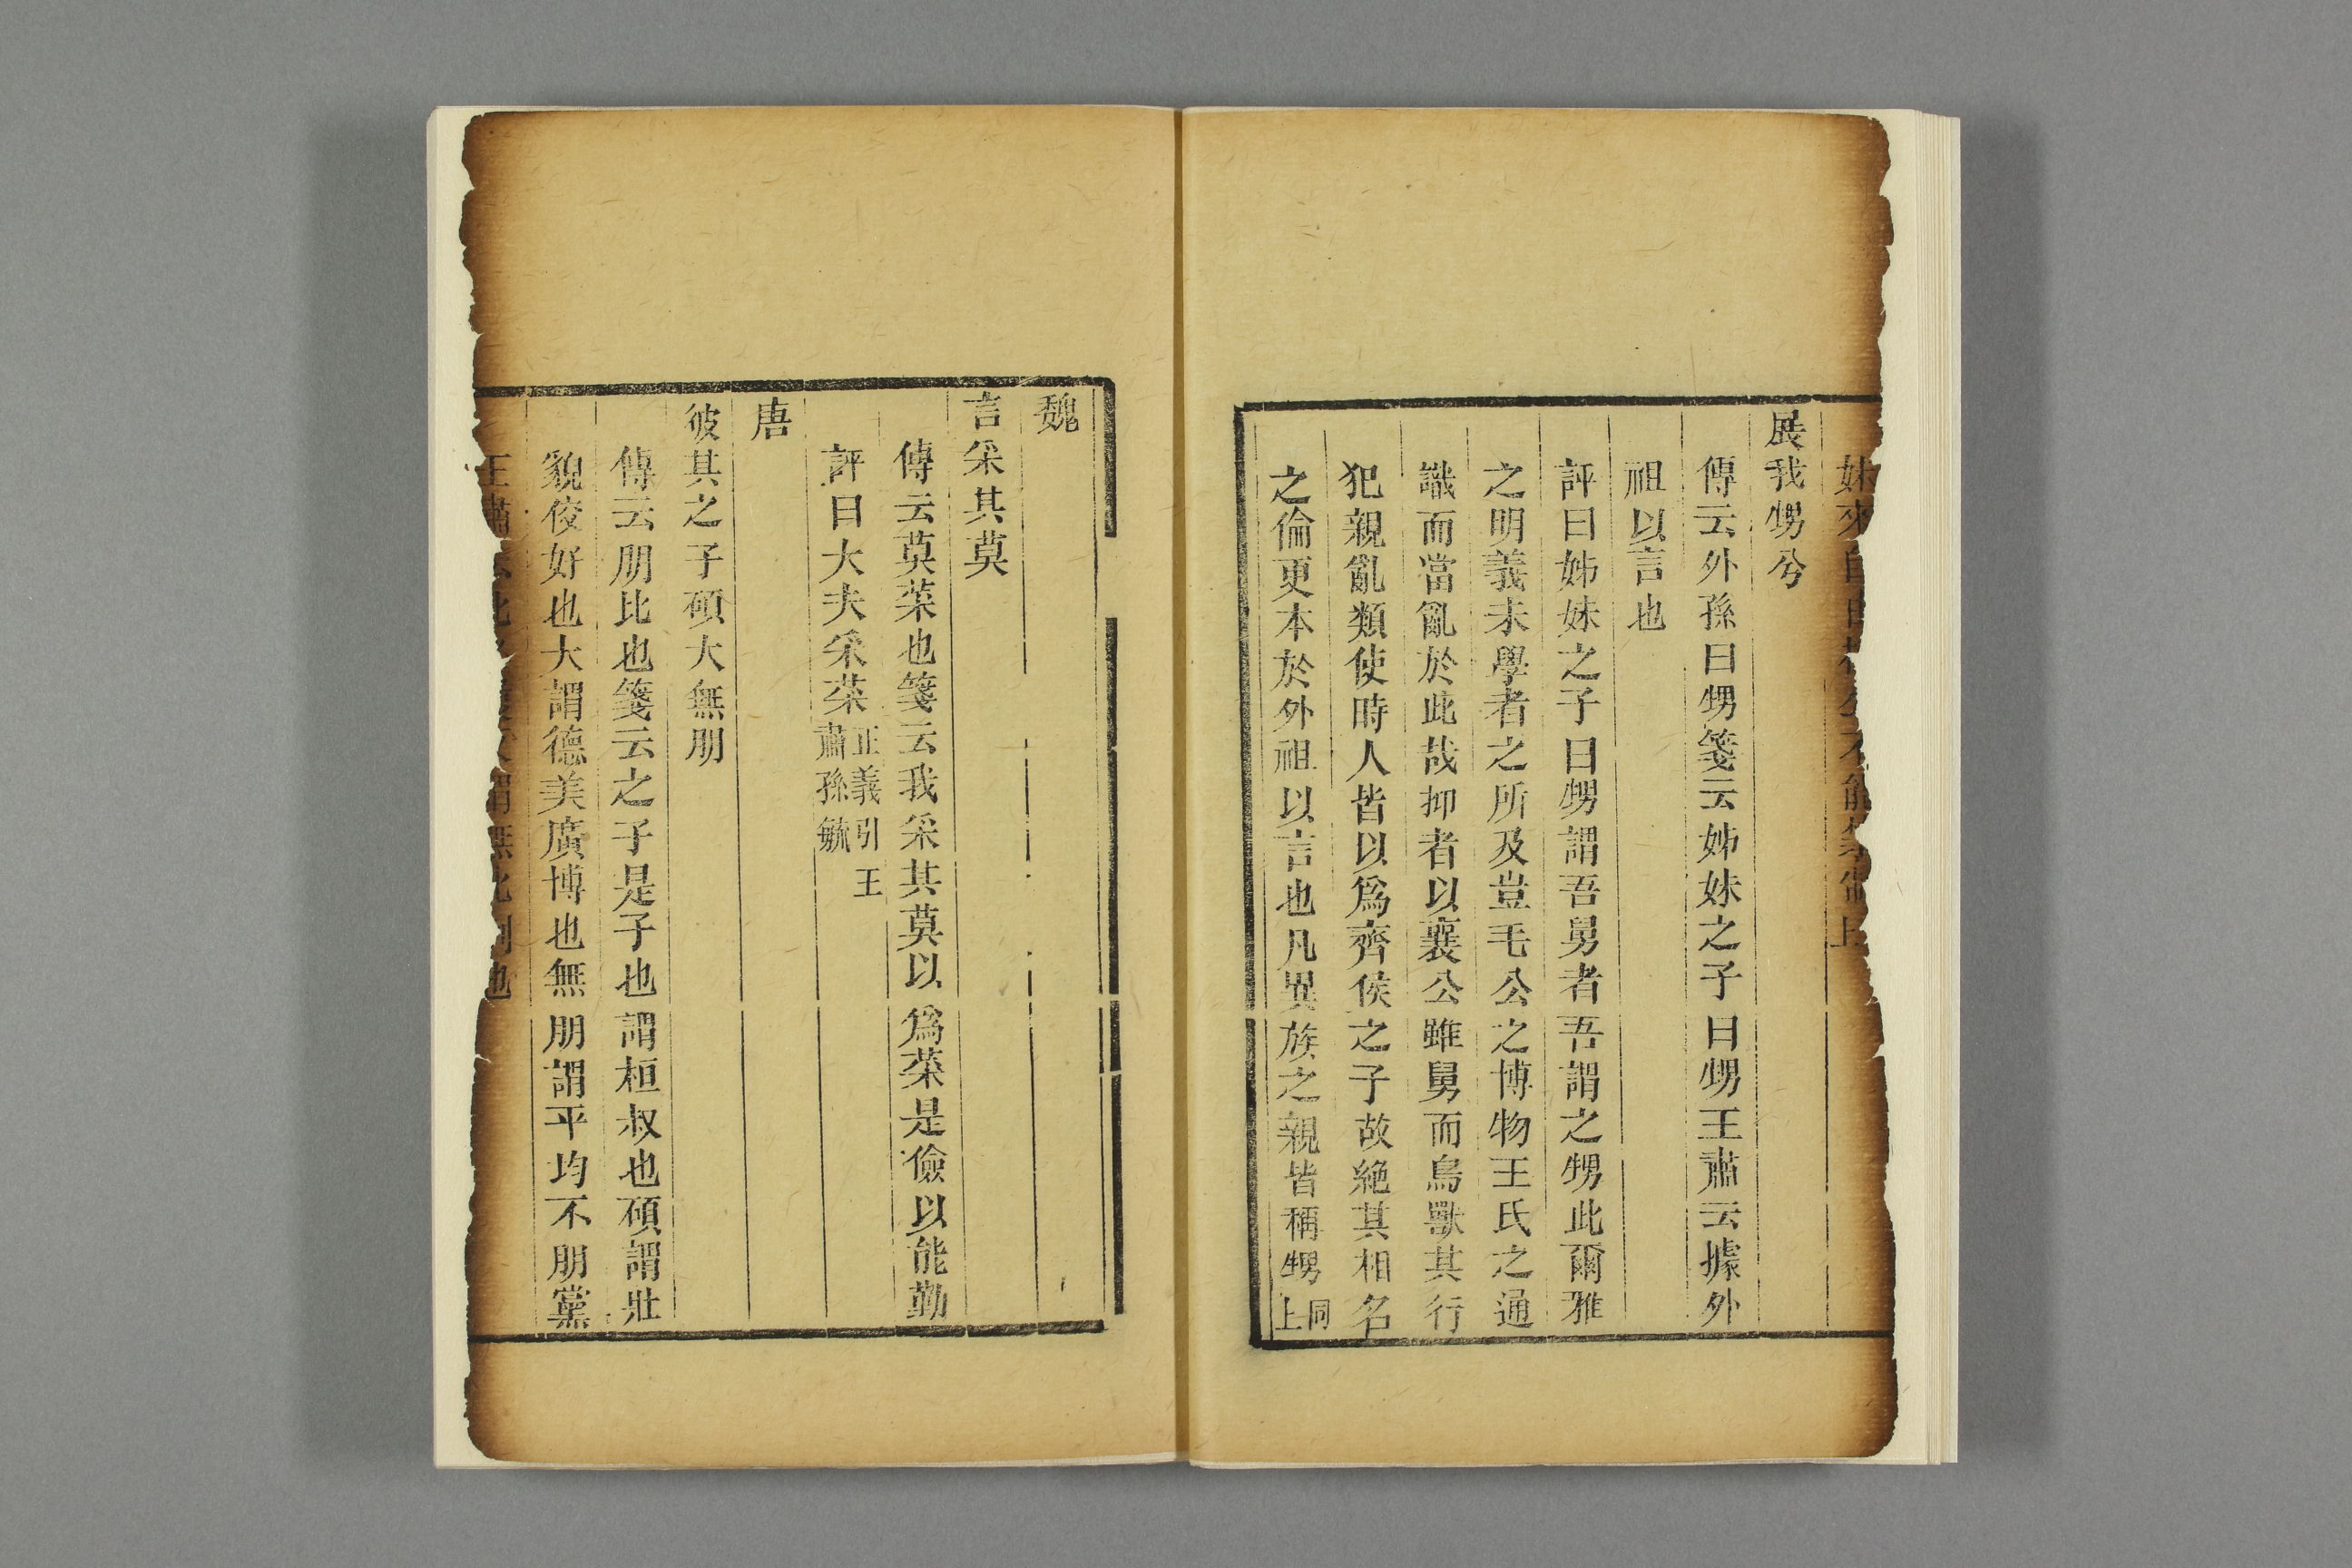 妹來自由
展我甥兮
傳云外孫曰甥箋云姊妹之子曰甥王肅云據外
祖以言也
評曰姊妹之子曰甥謂吾舅者吾謂之甥此爾雅
之明義未學者之所及豈毛公之博物王氏之通
識而當亂於此哉抑者以襄公雖舅而鳥獸其行
犯親亂類使時人皆以爲齊侯之子故絕其相名
之倫更本於外祖以言也凡異族之親皆稱甥同上
魏
言采其莫
傳云莫菜也箋云我采其莫以爲菜是儉以能勤
評曰大夫采菜正義引王肅孫毓
唐
彼其之子碩大無朋
傳云朋比也箋云之子是子也謂桓叔也碩謂壯
貌佼好也大謂德美廣博也無朋謂平均不朋黨
王肅